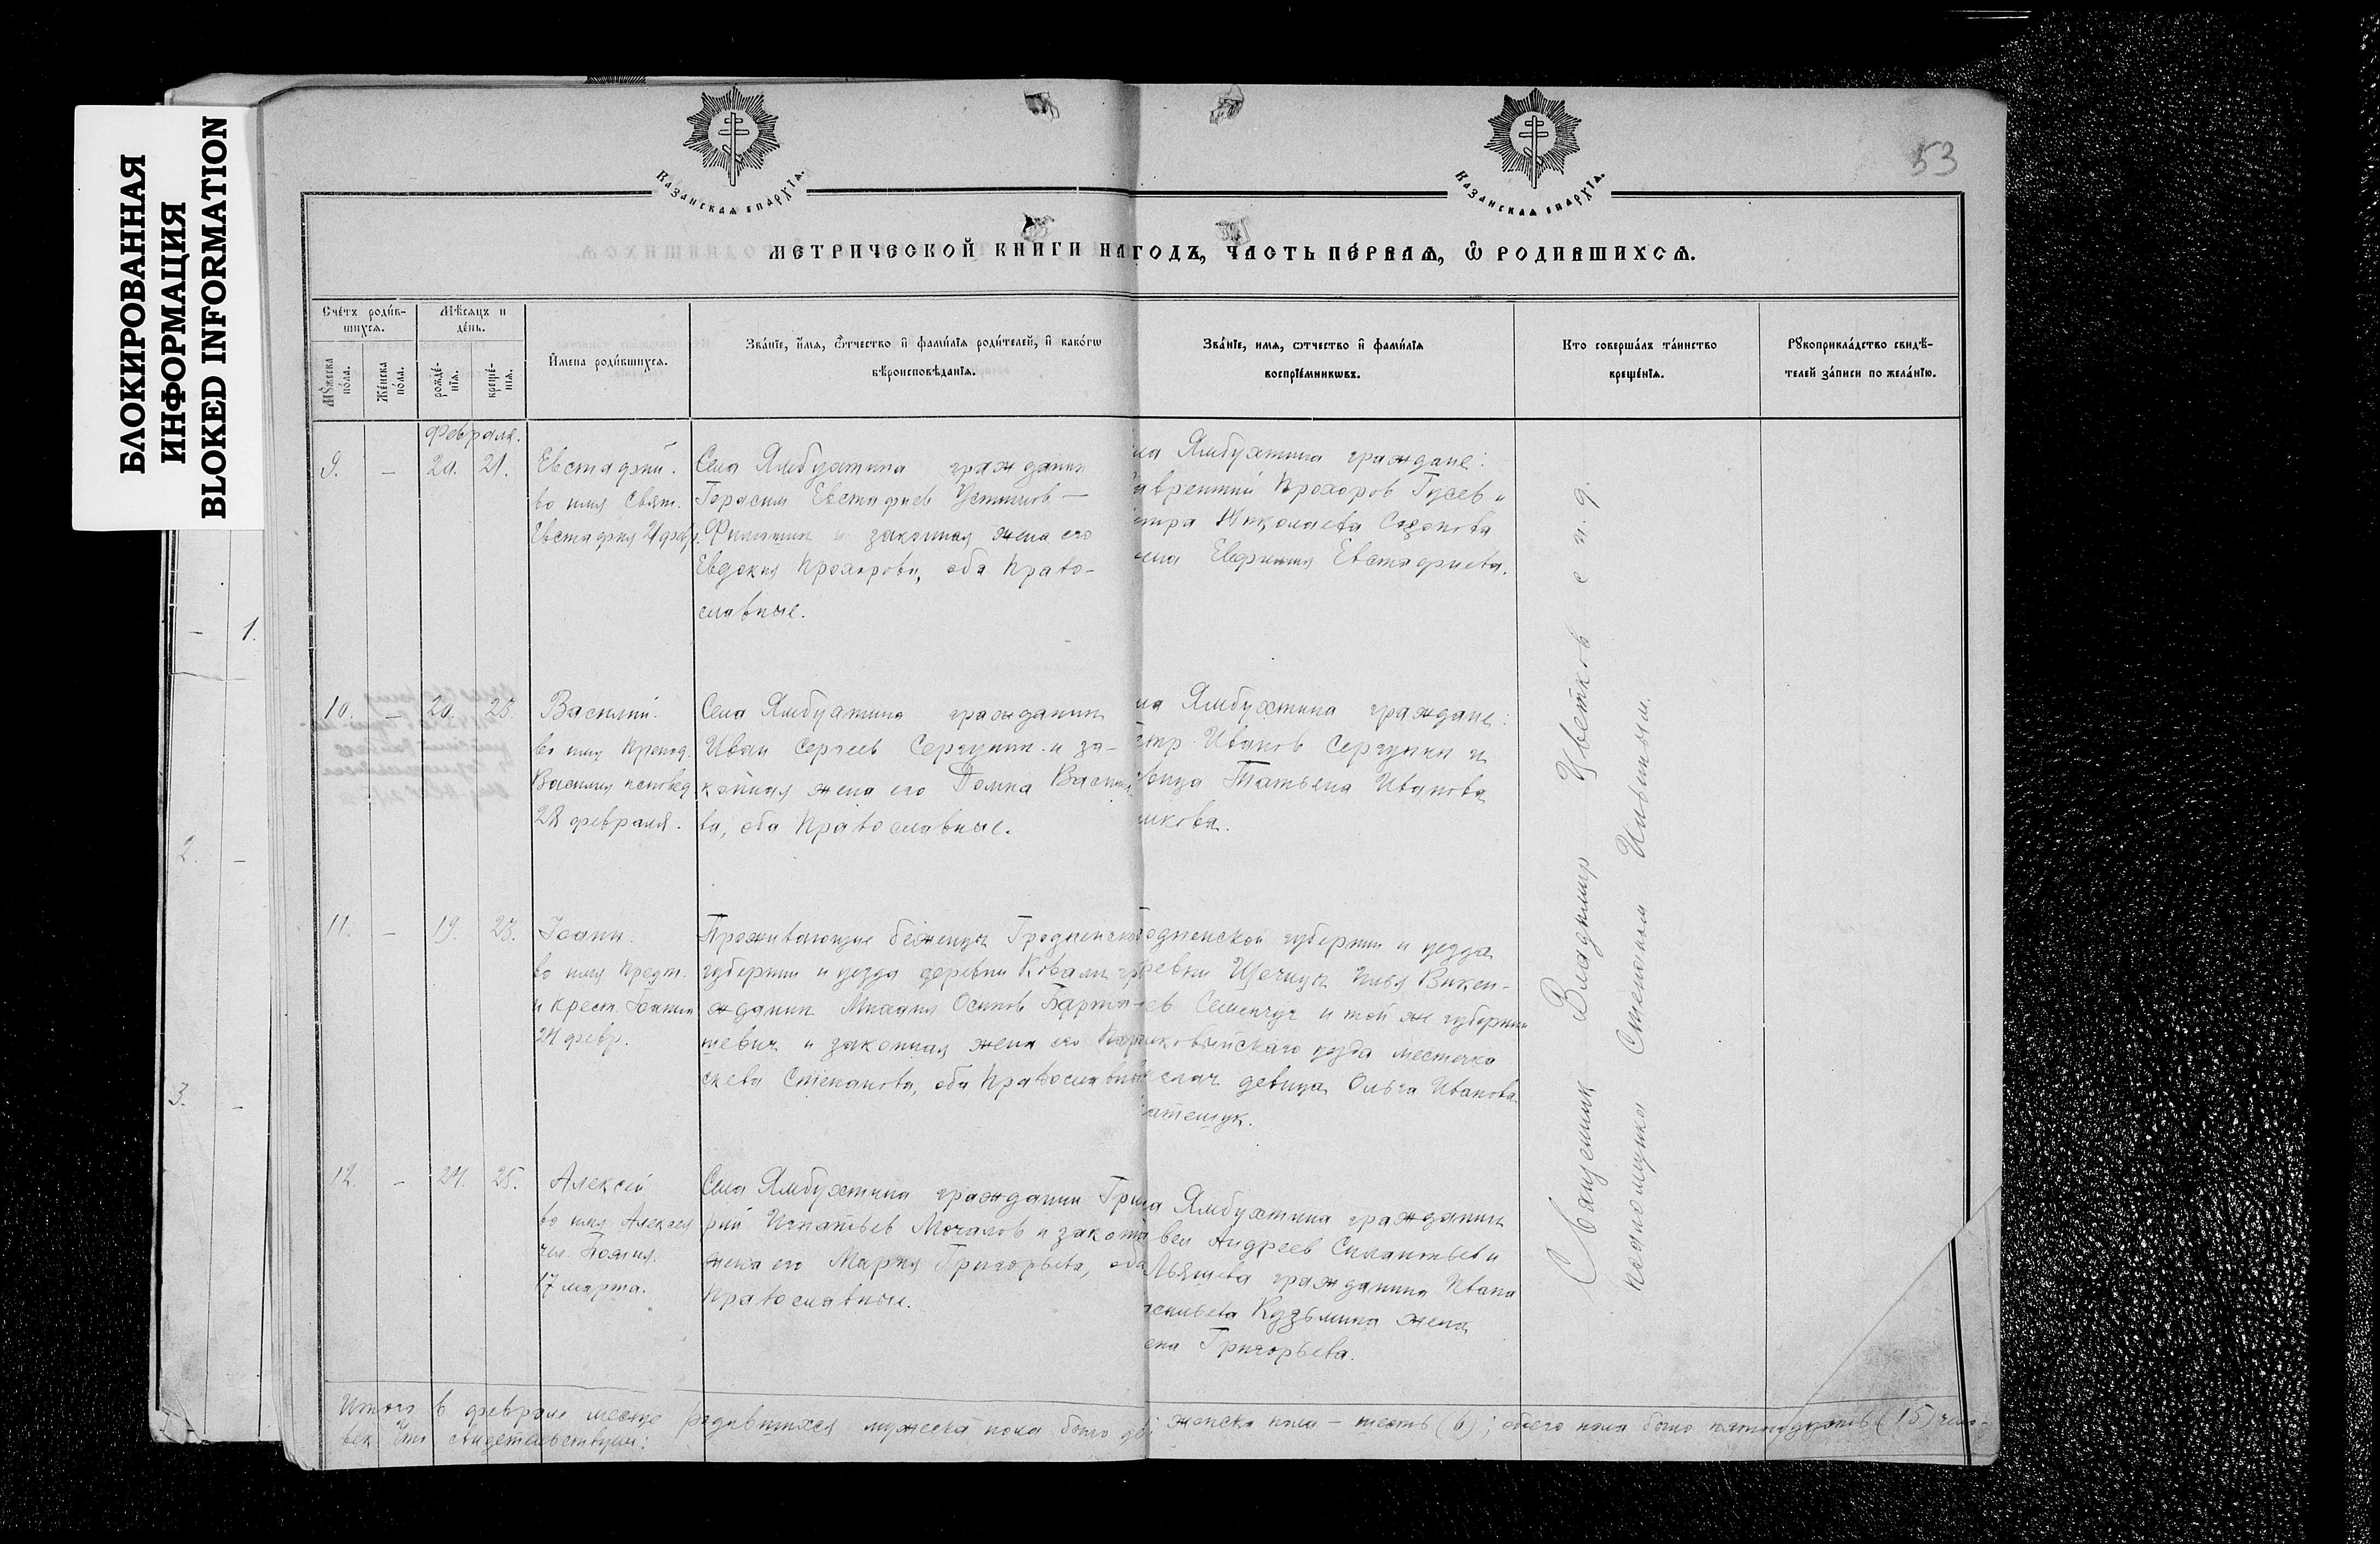 БЛОКИРОВАННАЯ
ИНФОРМАЦИЯ
BLOKED INFORMATION
53
КАЗАНСКАЯ ЕПАРХІЯ.
КАЗАНСКАЯ ЕПАРХІЯ.
МЕТРИЧЕСКОЙ КНИГИ НА ГОДЪ, ЧАСТЬ ПЕ́РВАЯ, Ѡ РОДИВШИХСЯ.
Счетъ роди́вшихся.
Мѣсяцъ и де́нь.
Мꙋжеска по́ла.
Же́нска по́ла.
рожде́нїя.
креще́нїя.
И҆мена роди́вшихся.
Зва́нїе, и҆мя, ѻ҆тчество и҆ фами́лїя роди́телей, и҆ како́гѡ
вѣроисповѣ́данїѧ.
Зва́нїе, имя, ѻтчество и҆ фами́лїѧ
воспрїе́мникѡвъ.
Кто соверша́лъ та́инство
креще́нїя.
Рꙋкоприкла́дство свидѣ́-
телей за́писи по жела́нїю.
Февраля.
9. — 20. 21.
Евстафий.
во имя Свят.
Евстафия 21 февр.
Села Ямбухтина гражданин
Герасим Евстафиев Устинов —
и законная жена его
Евдокия Прохорова, оба Право-
славные.
ла Ямбухтина граждане:
аврентий Прохоров Гусев и
етра Николаева Сазонова
ена Евфимия Евстафиева.
10. — 20. 23.
Василий.
во имя Препод.
Василия исповед.
28 февраля.
Села Ямбухтина гражданин
Иван Сергеев Сергунин и за-
конная жена его Домна Василь
ва, оба Православные.
ла Ямбухтина граждане:
етр Иванов Сергунин и
вица Татьяна Иванова
икова.
11. — 19. 23.
Иоанн.
во имя Предт.
и крест. Иоанна
24 февр.
Проживающие беженцы Гродненской
губернии и уезда деревни Ковали гр
жданин Михаил Осипов Барто
шевич и законная жена его Пара
скева Степанова, оба Православные
родненской губернии и уезда
ревни Щечицы Викен-
ев Семенчук и той же губернии
лковыйского уезда местечка
девица Ольга Иванова
12. — 24. 25.
Алексей
во имя Алексея
чел. Божия.
17 марта.
Села Ямбухтина гражданин Григо
рий Игнатьев Мочалов и законная
жена его Мария Григорьева, оба
Православные.
ла Ямбухтина гражданин
вел Андреев Силантьев и
гражданина Ивана
асильева Кузьмина жена
ена Григорьева.
Священник Владимир Цветков с и. д.
псаломщика Степаном Ильиным.
Итого в феврале месяце родившихся мужеска пола было де; женска пола — шесть (6); обоего пола было пятнадцать (15) чело-
век. Что свидетельствуем:
— 1.
2. —
3. —